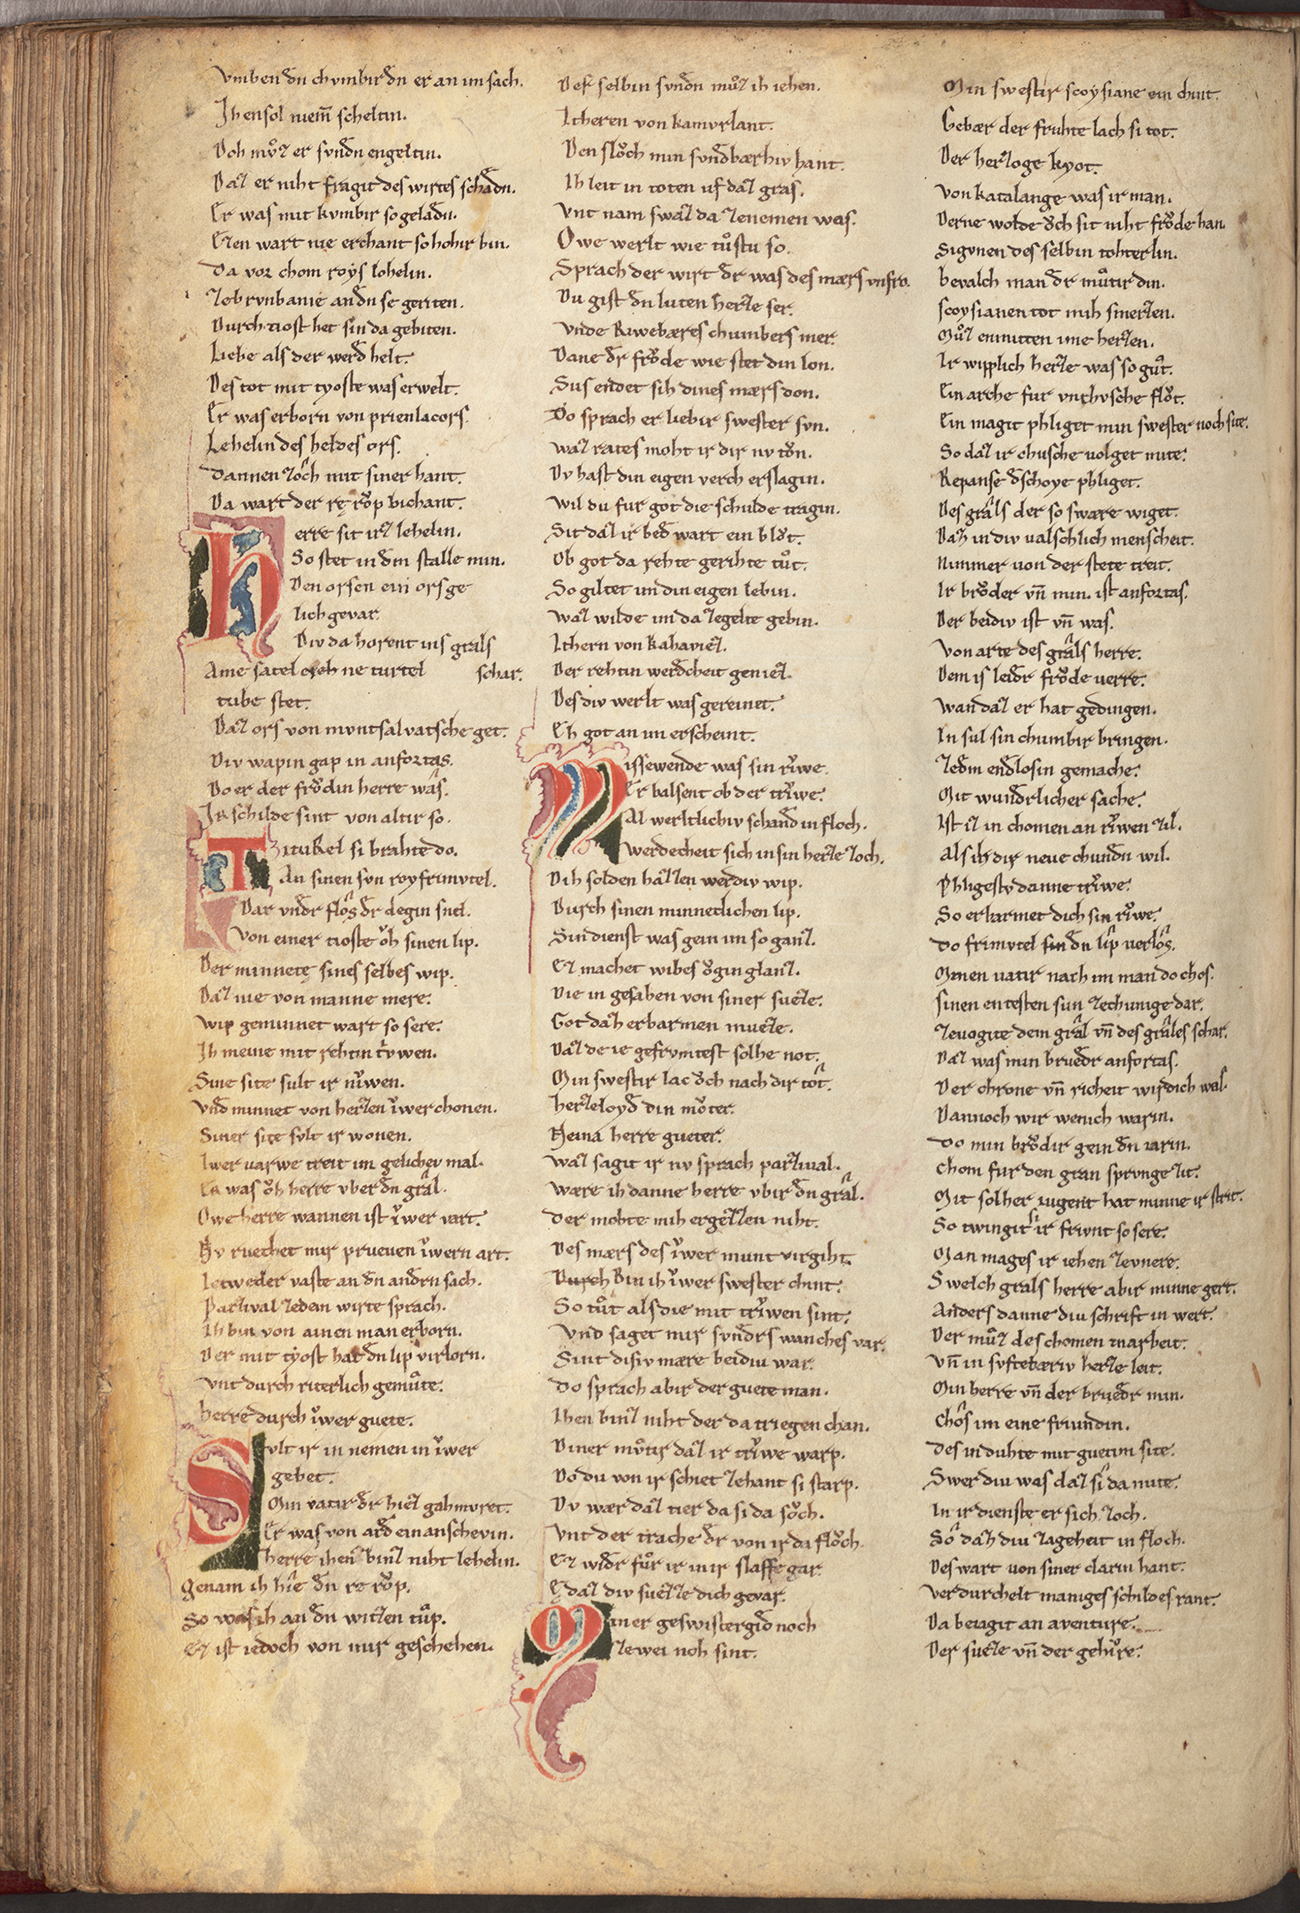 Vmben dn chvmbir dn er an im sach.
Ih ensol niem̄ scheltin.
Doh mvͦz er svndn engeltin.
Daz er niht fragit des wirtes schadn.
Er was mit kvmbir so geladn.
Ezen wart nie erchant so hohir bin.
Da vor chom roys lohelin.
Ze brvnbanie an dn se geriten.
Durch tiost het sin da gebiten.
Liebe als der werd helt.
Des tot mit tyoste was erwelt.
Er was erborn von prienlacors.
Lehelin des heldes ors.
Dannen zoͮch mit siner hant.
Da wart der re roͮp bichant.
Herre sit irz lehelin.
So stet in dm stalle min.
Den orsen ein ors ge
lich gevar.
Div da horent ins grals
schar.
Ame satel ein turtel
tube stet.
Daz ors von mvntsalvatsche get.
Div wapin gap in anfortas.
Do er der froͮdin herre was.
Ir schilde sint von altir so.
Titurel si brahte do.
An sinen svn roy frimvtel.
Dar vndr flos dr degin snel.
Von einer tioste oͮh sinen lip.
Der minnete sines selbes wip.
Daz nie von manne mere.
Wip geminnet wart so sere.
Ih meine mit rehtin trywen.
Sine site sult ir nẘwen.
Vnd minnet von herzen iwer chonen.
Siner site svlt ir wonen.
Iwer varwe treit im gelichev mal.
Er was oͮh herre vber dn gral.
Owe herre wannen ist iwer vart.
Nv ruchet mir prueuen iwern art.
Ietweder vaste an dn andrn sach.
Parzival ze dem wirte sprach.
Ih bin von ainen man erborn.
Der mit tyost hat dn lip virlorn.
Vnt durch riterlich gemuͤte.
Herre durch iwer guete.
Svlt ir in nemen in iwer
gebet.
Min vatir dr hiez gahmvret.
Er was von ard ein anschevin.
Herre ihen binz niht lehelin.
Genam ih hie dn re roͮp.
So was ih an dn witzen tuͮp.
Ez ist iedoch von mir geschehen.
Der selbin svndn muͦz ih iehen.
Itheren von kamvrlant.
Den sloͮch min svndbærhiv hant.
Ih leit in toten uf daz gras.
Vnt nam swaz da zenemen was.
Owe werlt wie tuͦstu so.
Sprach der wirt dr was des mærs vnfro.
Du gist dn luten herze ser.
Vnde Riwebæres chumbers mer.
Dane dr froͮde wie stet din lon.
Sus endet sih dines mærs don.
Do sprach er liebir swester svn.
Waz rates moht ir dir nv tvͦn.
Dv hast din eigen verch erslagin.
Wil du fur got die schulde tragin.
Sit daz ir bed wart ein blvͦt.
Ob got da rehte gerihte tuͦt.
So giltet im din eigen lebin.
Waz wilde im da ze gelte gebin.
Ithern von kahaviez.
Der rehtin werdcheit geniez.
Des div werlt was gereinet.
Eh got an im erscheint.
Missewende was sin rẘwe.
Er balsent ob der trẘwe.
Al werltlichiv schand in floch.
Werdecheit sich in sin herze zoch.
Dih solden hazzen werdiv wip.
Durch sinen minnetlichen lip.
Sin dienst was gein im so ganz.
Ez machet wibes oͮgin glanz.
Die in gesahen von siner sueze.
Got dah erbarmen mueze.
Daz de ie gefrvmtest solhe not.
Min swestir lac oͮch nach dir tot.
Herzeloyd din muͦter.
Neina herre gueter.
Waz sagit ir nv sprach parzival.
Wære ih danne herre vbir dn gral.
Der mohte mih ergezzen niht.
Des mærs des iwer munt virgiht.
Bin ih iwer swester chint.
So tuͦt als die mit trẘwen sint.
Vnd saget mir svndrs wanches var.
Sint disiv mære beidiu war.
Do sprach abir der guete man.
Ihen binz niht der da triegen chan.
Diner muͦtir daz ir trẘwe warp.
Do du von ir schiet zehant si starp.
Dv wær daz tier da si da soͮch.
Vnt der trache dr von ir da floͮch.
Ez widr fuͦr ir inir slaffe gar.
E daz div sueze dich gevar.
Miner geswistergid noch
zewei noh sint.
Min swestir scoysiane ein chint.
Gebær der fruhte lach si tot.
Der herzoge kyot.
Von katalange was ir man.
Derne wolde oͮch sit niht froͮde han.
Sigvnen des selbin tohterlin.
Bevalch man dr muͦtir din.
Scoysianen tot mih smerzen.
Muͦz enmitten ime herzen.
Ir wiplich herze was so guͦt.
Ein arche fur vnchvsche flvͦt.
Ein magit phliget min swester noch site.
So daz ir chusche volget mite.
Repanse dschoye phliget.
Des grals der so swære wiget.
Dazn in div valschlich menscheit.
Nimmer von der stete treit.
Ir bruͦder vn̄ min. ist anfortas.
Der beidiv ist vn̄ was.
Von arte des grals herre.
Dem is leidr froͮde verre.
Wan daz er hat gedingen.
In sul sin chumbir bringen.
Ze dm endlosin gemache.
Mit wundrlicher sache.
Ist iz in chomen an rẘwen zil.
Als ih dir neve chundn wil.
Phligestv danne trẘwe.
So erbarmet dich sin rẘwe.
Do frimvtel dn lip verlos.
Minen vatir nach im man do chos.
Sinen entesten sun ze chunige dar.
Ze vogite dem gral vn̄ des grales schar.
Daz was min bruedr anfortas.
Der chrone vn̄ richeit wirdich was.
Dannoch wir wenich warin.
Do min bruͦdir gein dn iarin.
Chom fur der gran sprvnge zit.
Mit solher iugent hat minne ir strit.
So twingit sir ir frivnt so sere.
Man mages ir iehen ze vnere.
Swelch grals herre abir minne gert.
Anders danne div schrift in wert.
Der muͦz des chomen ze arbeit.
Vn̄ in svftebæriv herze leit.
Min herre vn̄ der bruedr min.
Chos im eine friundin.
Des in duhte mit guetim site.
Swer div was daz si da mite.
In ir dienste er sich zoch.
So dah div zageheit in floch.
Des wart von siner clarin hant.
Verdurchelt maniges schildes rant.
Da beiagit an aventure.
Der sueze vn̄ der gehiͮre.